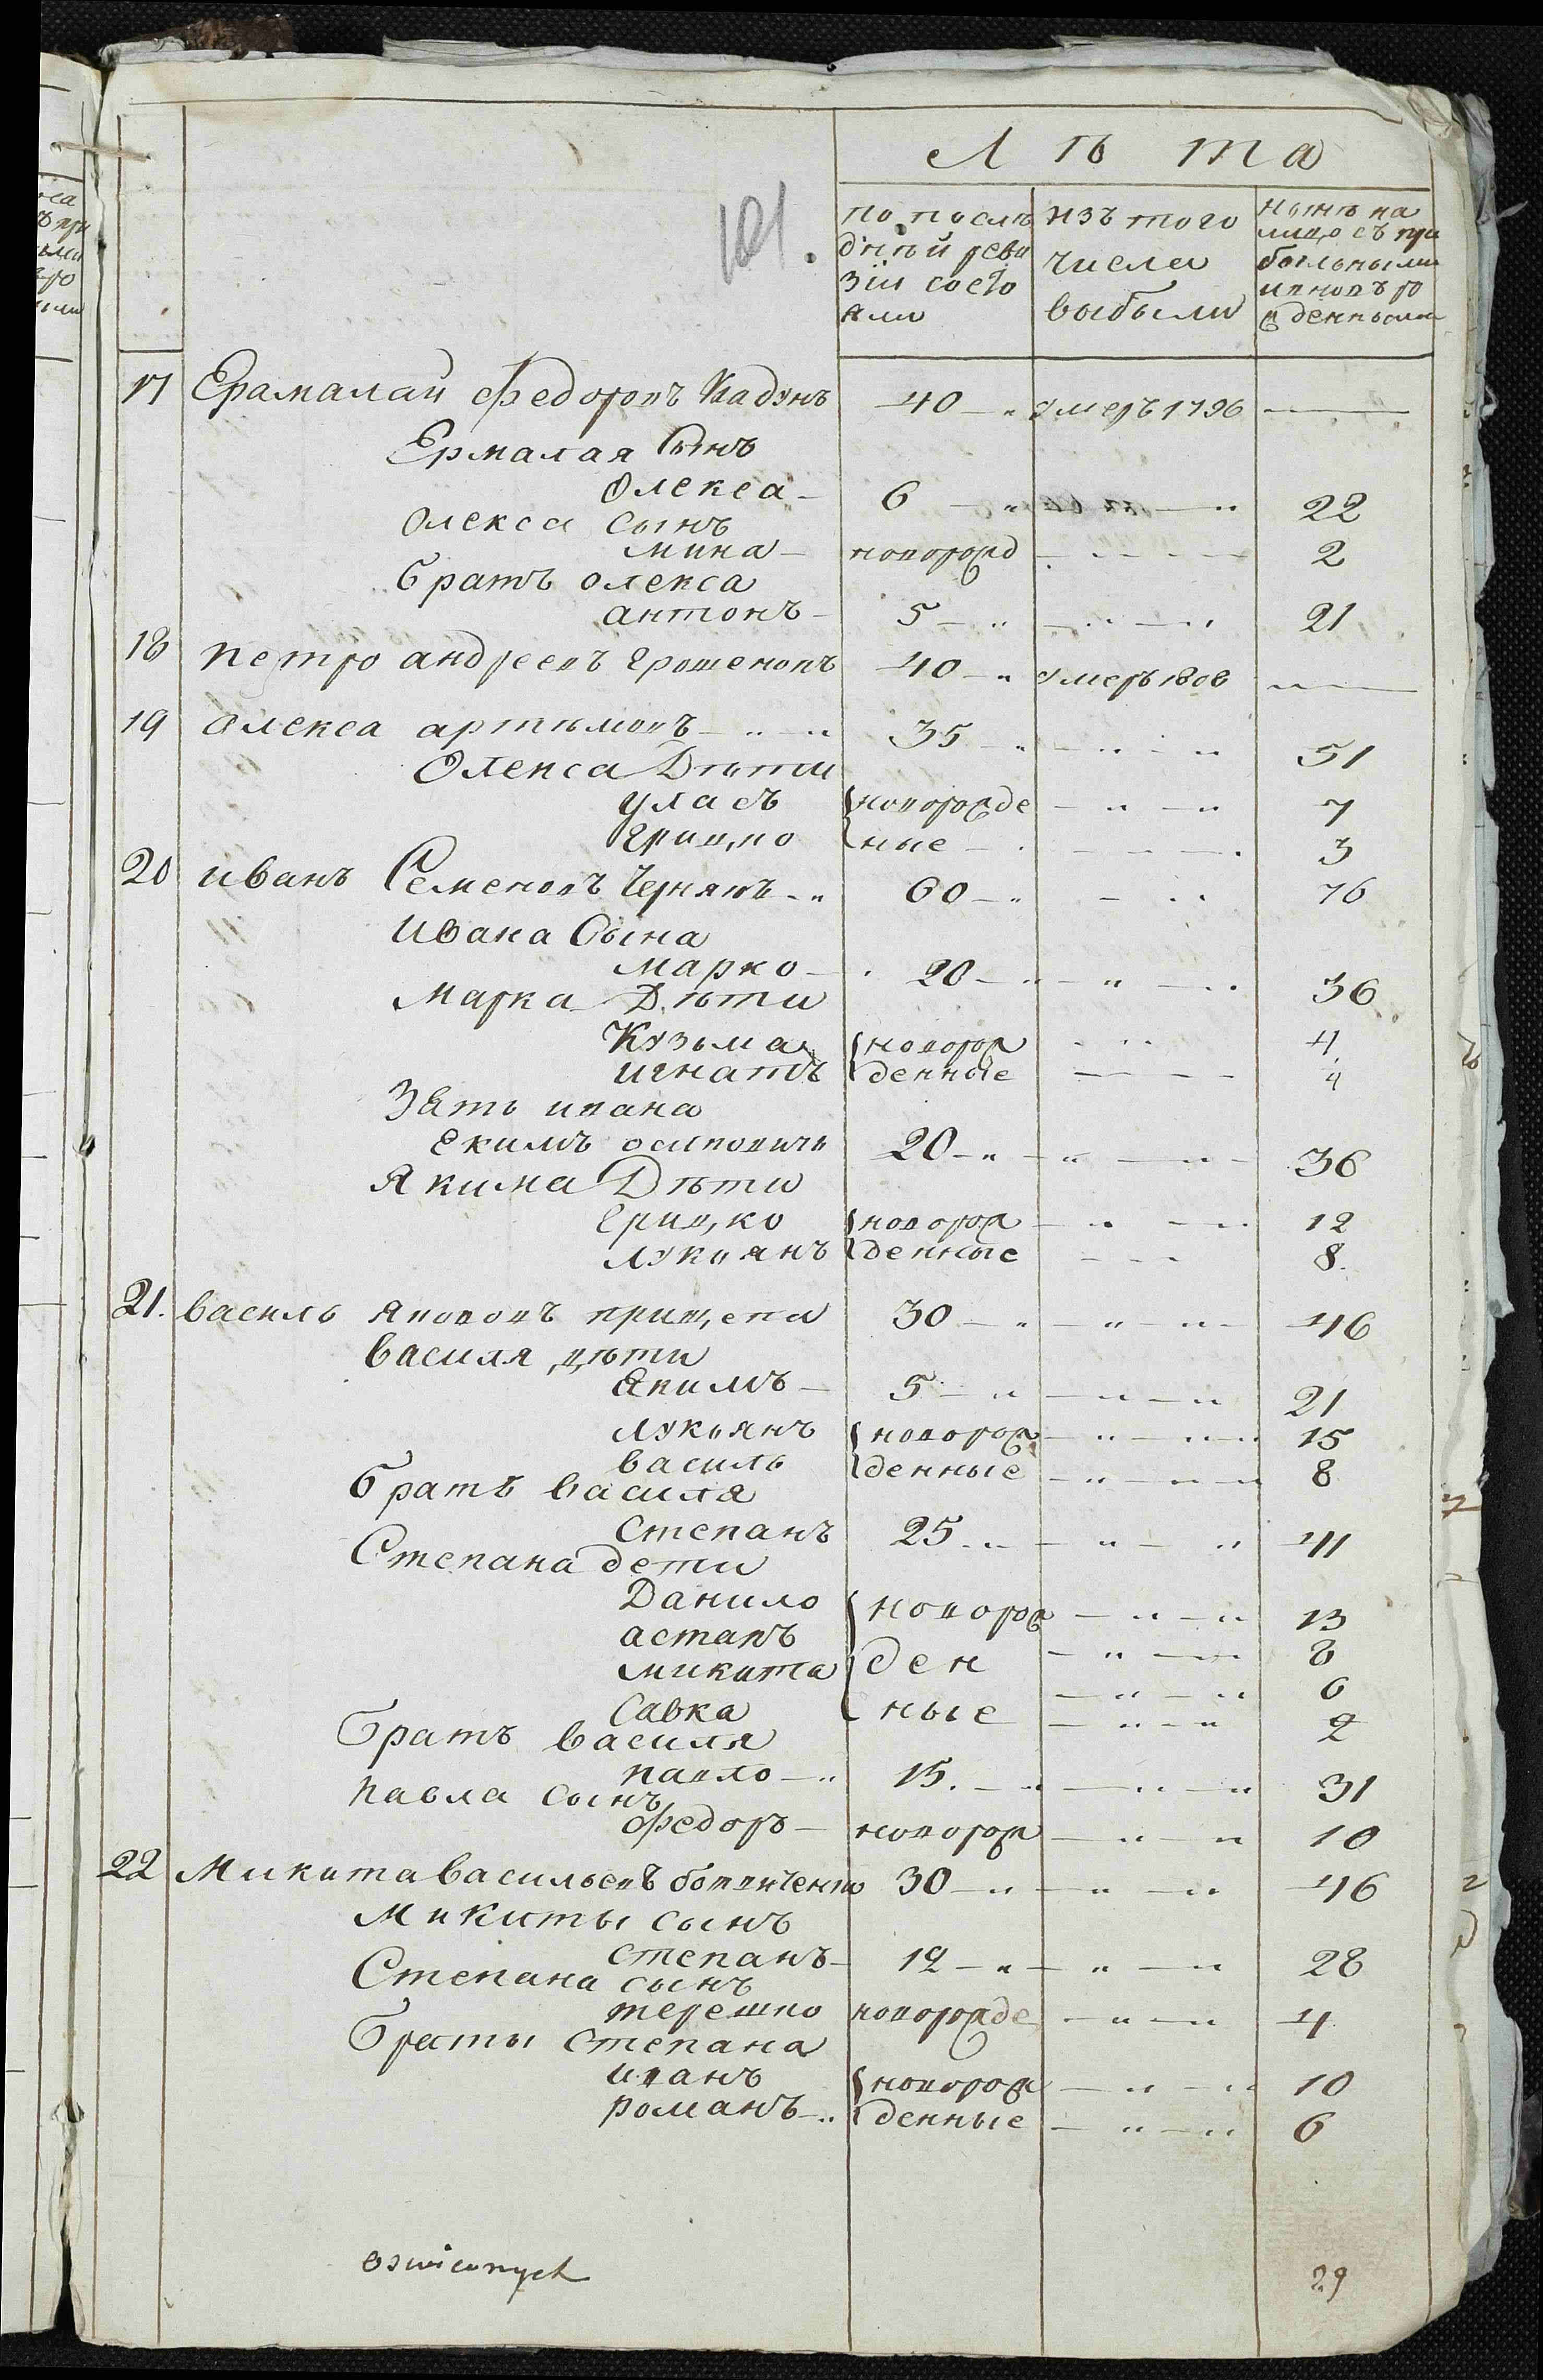 Л ѣ т а
по послѣ
дней реви
зіи состо
яли
изъ того
числа
выбыли
нынѣ на
лицо съ при
былыми
и новъ ро
жденными
101.
17 Ерамалай Федоровъ Кадунъ 40 умеръ 1796
Ермалая Сынъ
Олекса 6 22
Олекса сынъ
Мина новорожд 2
братъ олекса
антонъ 5 21
18 петро андреевъ Грошеновъ 40 умеръ 1808
19 Олекса артимовъ 35 51
Олекса Дѣти
уласъ новорожде 7
Грицко ные 3
20 иванъ Семеновъ Чернякъ 60 76
Ивана Сына
Марко 20 36
Марка Дѣти
Кузьма новорож 4
игнатъ денные 4
Зять ивана
екимъ осиповичъ 20 36
Якима Дѣти
Грицко новорож 12
лукъянъ денные 8.
21. василь якововъ прищепа 30 46
василя дѣти
Якимъ 5 21
лукъянъ новорож 15
василь денные 8
братъ василя
степанъ 25 41
Степана дети
Данило новорож 13
астапъ 8
микита ден 6
савка ные 2
братъ василя
павло 15. 31
павла сынъ
федоръ новорож 10
22 Микита васильевъ 30 46
Микиты сынъ
степанъ 12 28
Степана сынъ
терешко новорожде 4
браты степана
иванъ новорож 10
романъ денные 6
29